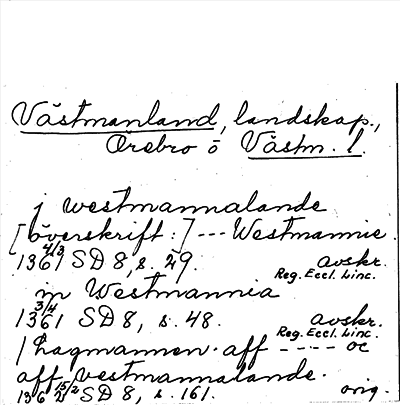 Västmanland, landskap.,
Örebro o Västm. l.
j westmannalande
[överskrift:] --- Westmannie
1361 4/3 SD 8, s. 29. avskr.
Reg. Eccl. Linc.
in Westmannia
1361 3/4 SD 8, s. 48. avskr.
Reg. Eccl. Linc.
lhagmannen. aff ---- oc
aff vestmannalande.
1362 15/2 SD 8, s. 161. orig.